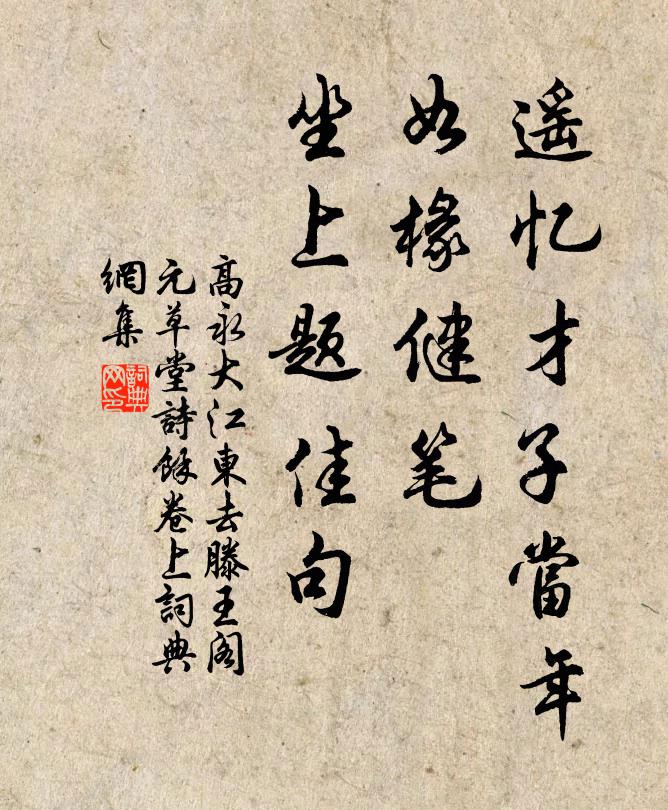 遥忆才子當年
如椽健笔
坐上题佳句
高永大江東去滕王阁
元草堂詩餘卷上詞典
網集
詞典
网印